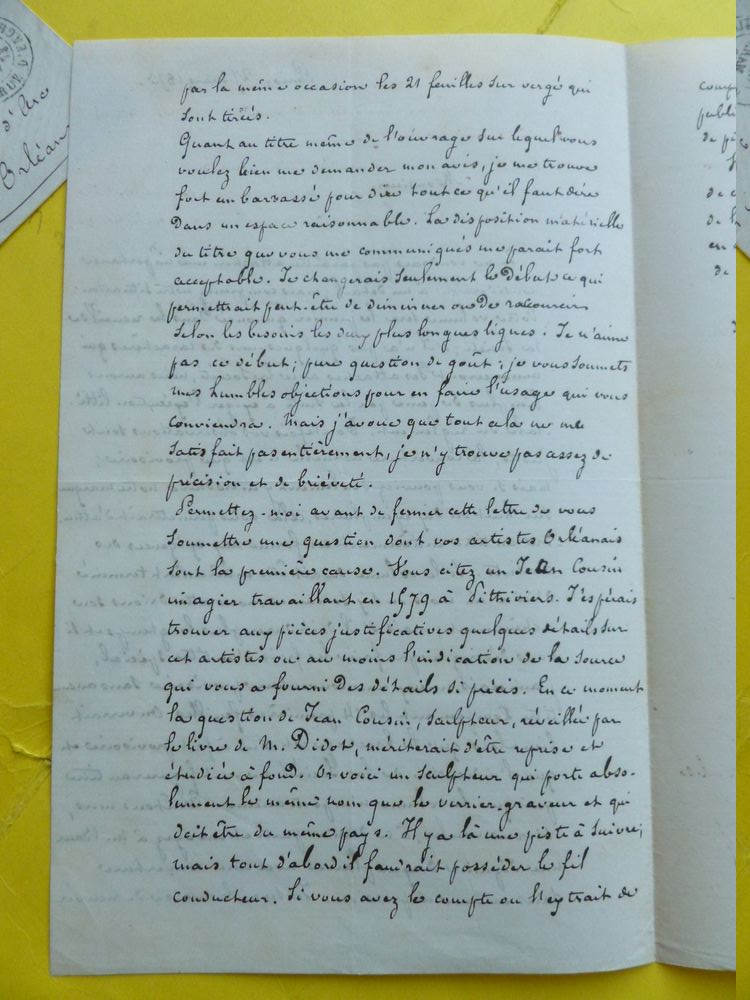 d'Arc
Orléans
par la même occasion les 21 feuilles sur vergé qui
sont tirées.
Quant au titre même de l'ouvrage sur lequel vous
voulez bien me demander mon avis, je me trouve
fort embarrassé pour dire tout ce qu'il faut dire
dans un espace raisonnable. La disposition matérielle
du titre que vous me communiqués me parait fort
acceptable. Je changerais seulement le début ce qui
permettrait peut-être de diminuer ou de raccourcir
selon les besoins les deux plus longues lignes. Je n'aime
pas ce début; pure question de goût; je vous soumets
mes humbles objections pour en faire l'usage qui vous
conviendra. Mais j'avoue que tout cela ne me
satisfait pas entièrement, je n'y trouve pas assez de
précision et de brièveté.
Permettez-moi avant de fermer cette lettre de vous
soumettre une question dont vos artistes Orléanais
sont la première cause. Vous citez un Jean Cousin
imagier travaillant en 1579 à Pithiviers. J'espérais
trouver aux pièces justificatives quelques détails sur
cet artistes ou au moins l'indication de la source
qui vous a fourni des détails si précis. En ce moment
la question de Jean Cousin, sculpteur, réveillée par
le livre de M. Didot, mériterait d'être reprise et
étudiée à fond. Or voici un sculpteur qui porte abso-
lument le même nom que le verrier-graveur et qui
doit être du même pays. Il y a là une piste à suivre;
mais tout d'abord il faudrait posséder le fil
conducteur. Si vous avez le compte ou l'extrait de